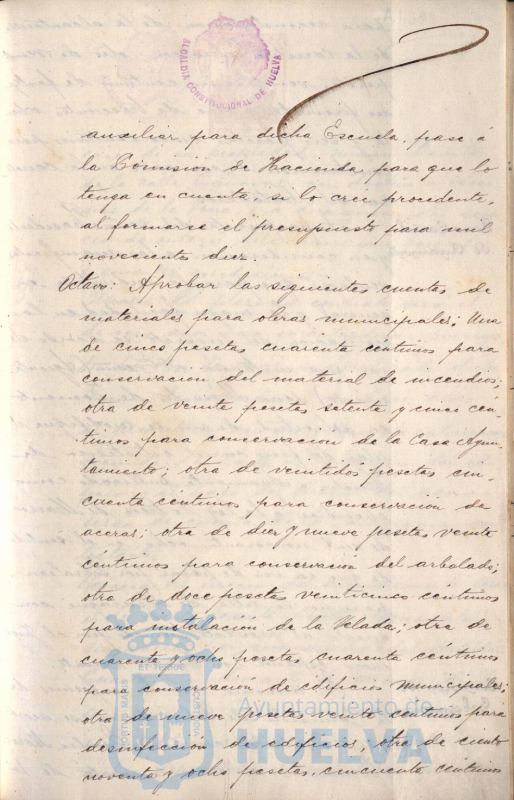 ALCALDIA CONSTITUCIONAL DE HUELVA
auxiliar para dicha Escuela, pase á
la Comision de Hacienda para que lo
tenga en cuenta, si lo cree procedente,
al formarse el presupuesto para mil
novecientos diez.
Octavo: Aprobar las siguientes cuentas de
materiales para obras municipales; Una
de cinco pesetas cuarenta céntimos para
conservacion del material de incendios;
otra de veinte pesetas setenta y cinco cén-
timos para conservacion de la Casa Ayun-
tamiento; otra de veintidós pesetas cin-
cuenta céntimos para conservacion de
aceras; otra de diez y nueve pesetas veinte
céntimos para conservacion del arbolado;
otra de doce pesetas veinticinco céntimos
para instalación de la Velada; otra de
cuarenta y ocho pesetas cuarenta céntimos
para conservación de edificios municipales;
otra de nueve pesetas veinte céntimos para
desinfeccion de edificios; otra de ciento
noventa y ocho pesetas, cincuenta céntimos
Ayuntamiento de
HUELVA
PORTUS MARIS
ET TERRAE